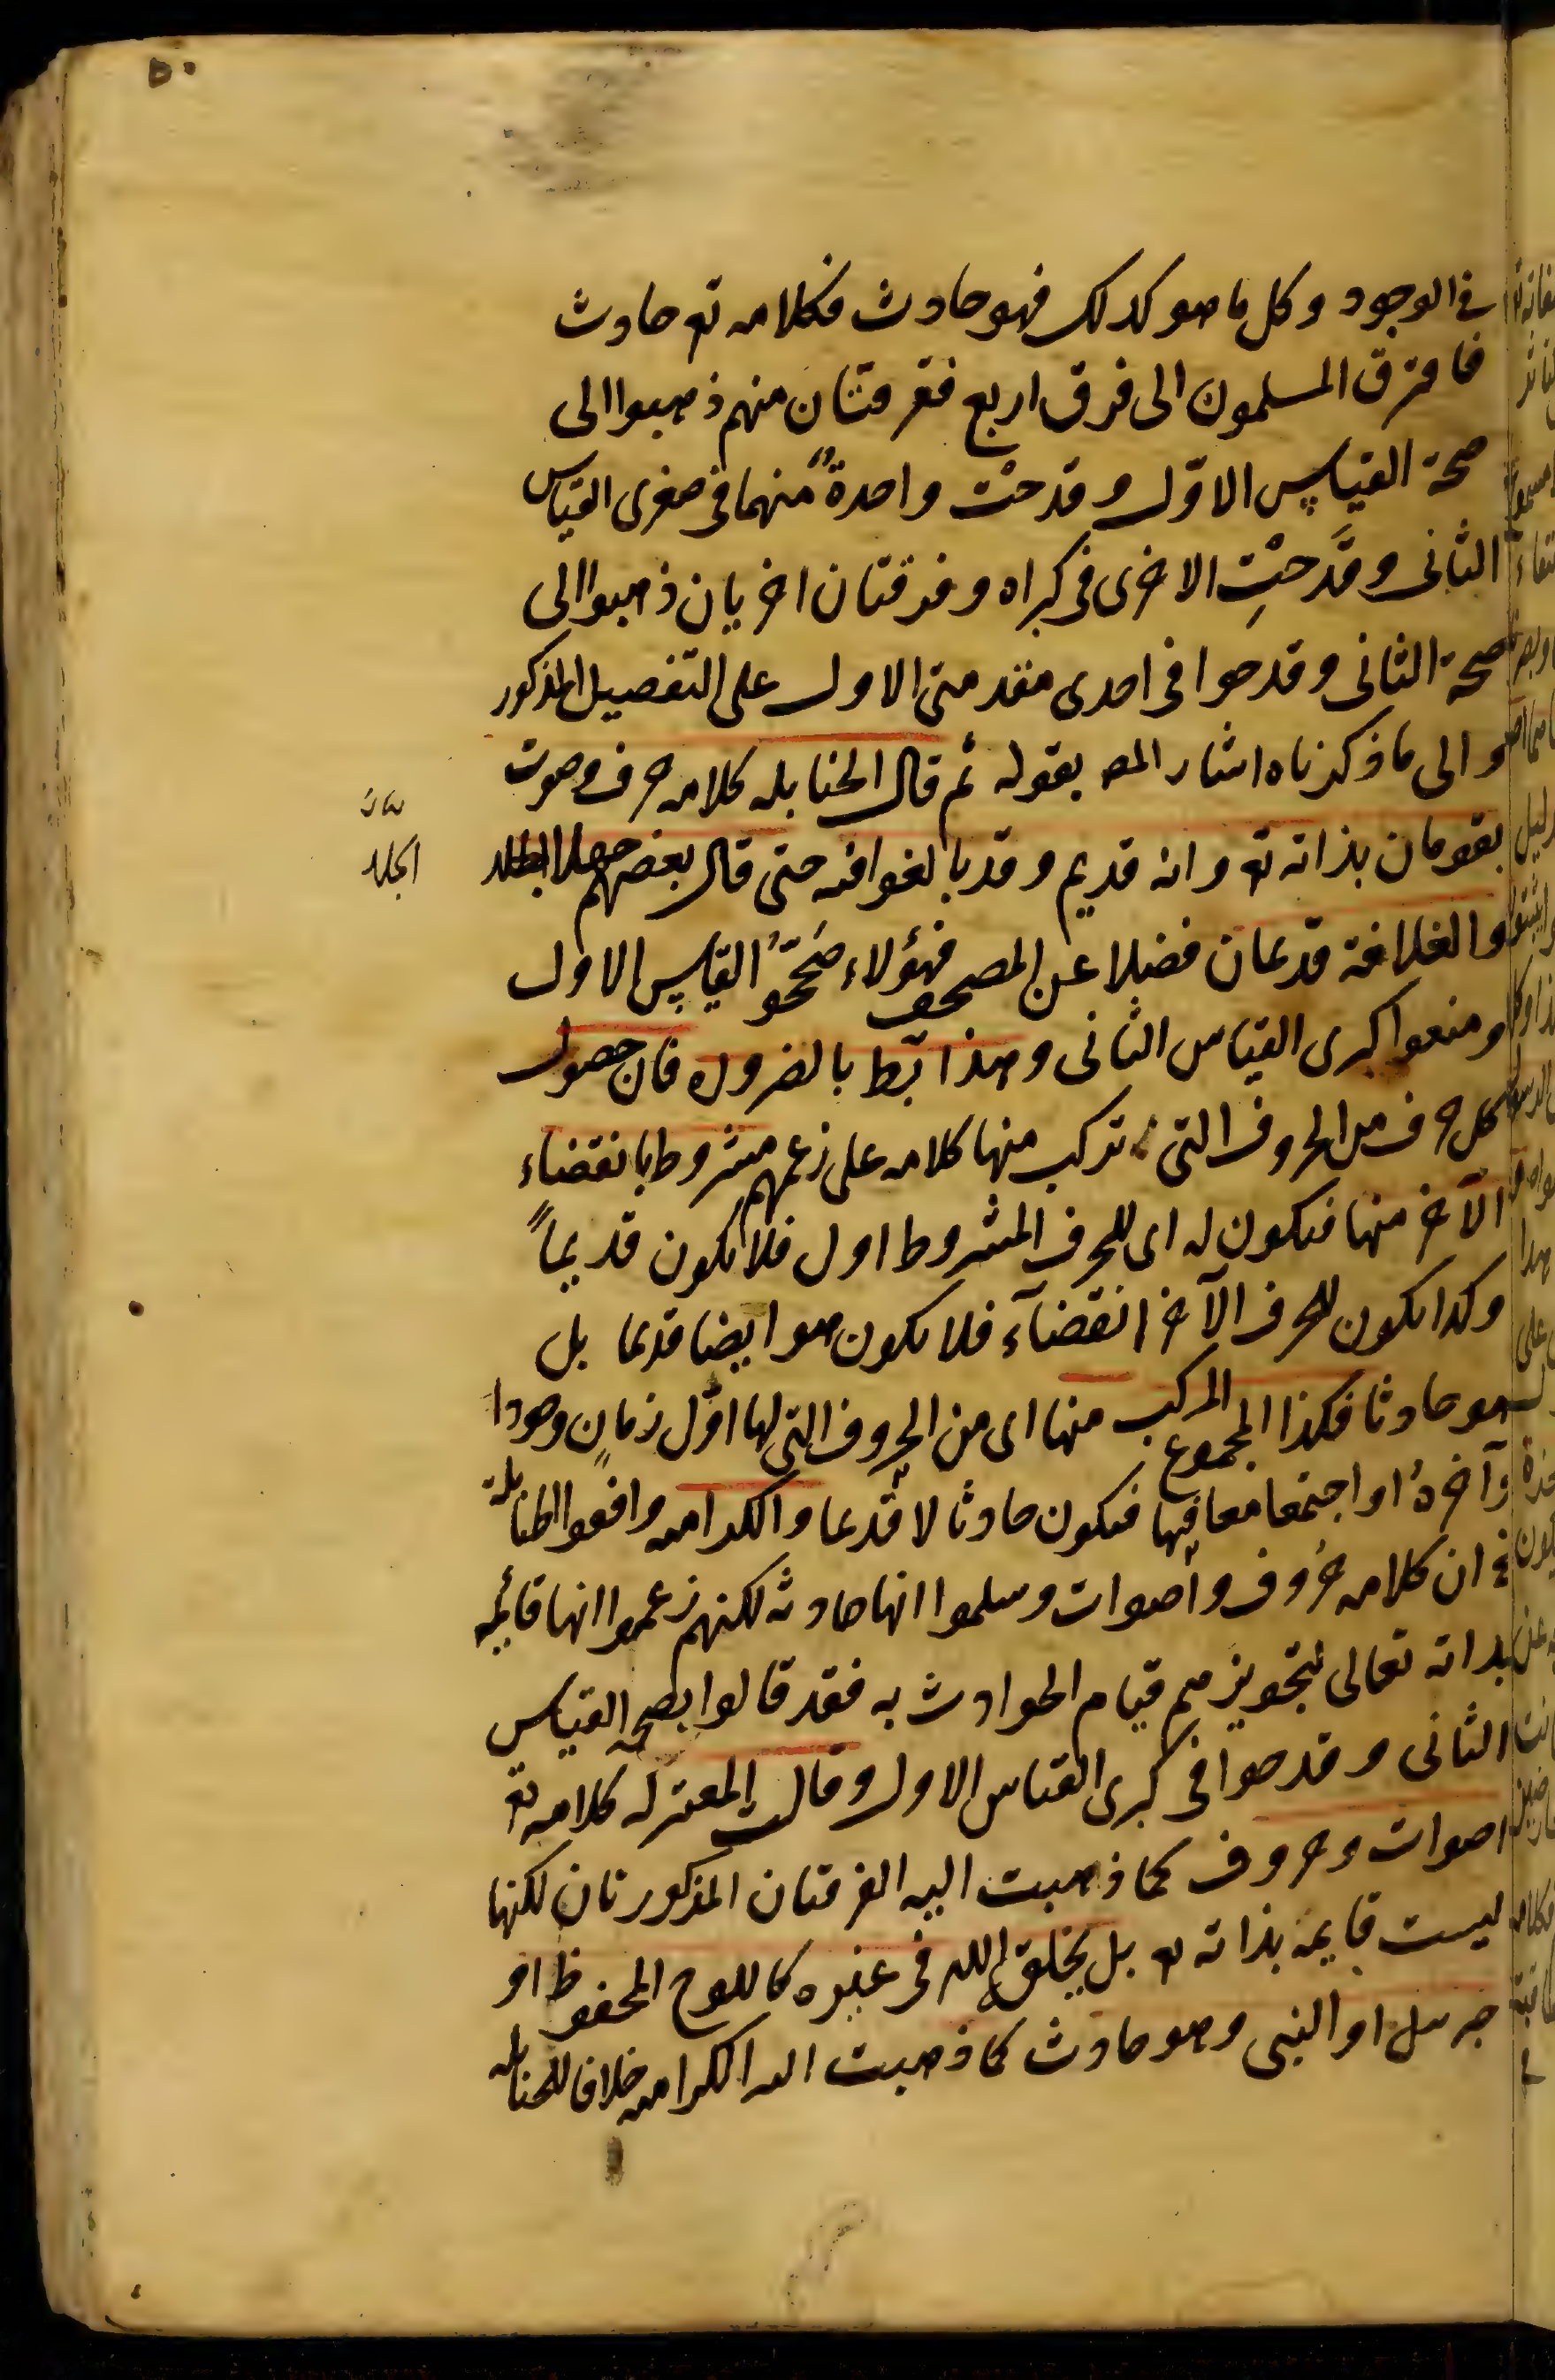 ٥٠
في الوجود وكل ما هو كذلك فهو حادث فكلامه تع حادث
فافترق المسلمون الى فرق اربع ففرقتان منهم ذهبوا الى
صحة القياس الاوّل وقدحت واحدةٌ منهما في صغرى القياس
الثانى وقَدحتْ الاخرى في كبراه وفرقتان اخريان ذهبوا الى
صحة الثانى وقدحوا في احدى مقدمتى الاول على التفصيل المذكور
والى ما ذكرناه اشار المص بقوله ثم قال الحنابله كلامه حرف وصوت
يقومان بذاته تع وانه قديم وقد بالغوا فيه حتى قال بعضهم جهلا
الجلد
والغلاف قديمان فضلا عن المصحف فهؤلاء صَحّحُوا القياس الاول
ومنعوا كبرى القياس الثانى وهذا بط بالضروره فان حصول
كل حرف من الحروف التى تركب منها كلامه على زعمهم مشروط بانقضاء
الآخر منها فيكون له اى للحرف المشروط اول فلا يكون قديماً
وكذا يكون للحرف الآخر انقضآء فلا يكون هو ايضا قديما بل
هو حادثا فكذا المجموع المركب منها اى من الحروف التى لها اوّل زمان وجودا
وآخرهُ او اجتمعا معا فيها فيكون حادثا لا قديما والكراميه وافقوا الحنابلة
في ان كلامه حُروف وأصوات وسلموا انها حادثه لكنهم زعموا انها قائمه
بذاته تعالى لتجويزهم قيام الحوادث به فقد قالوا بصحه القياس
الثانى وقدحوا في كبرى القياس الاول وقالت المعتزله كلامه تع
اصوات وحروف كما ذهبت اليه الفرقتان المذكورتان لكنها
ليست قايمة بذاته تع بل يخلق الله في غيره كاللوح المحفوظ او
جبرىل او النبى وهو حادث كما ذهبت اليه الكراميه خلافا للحنابله